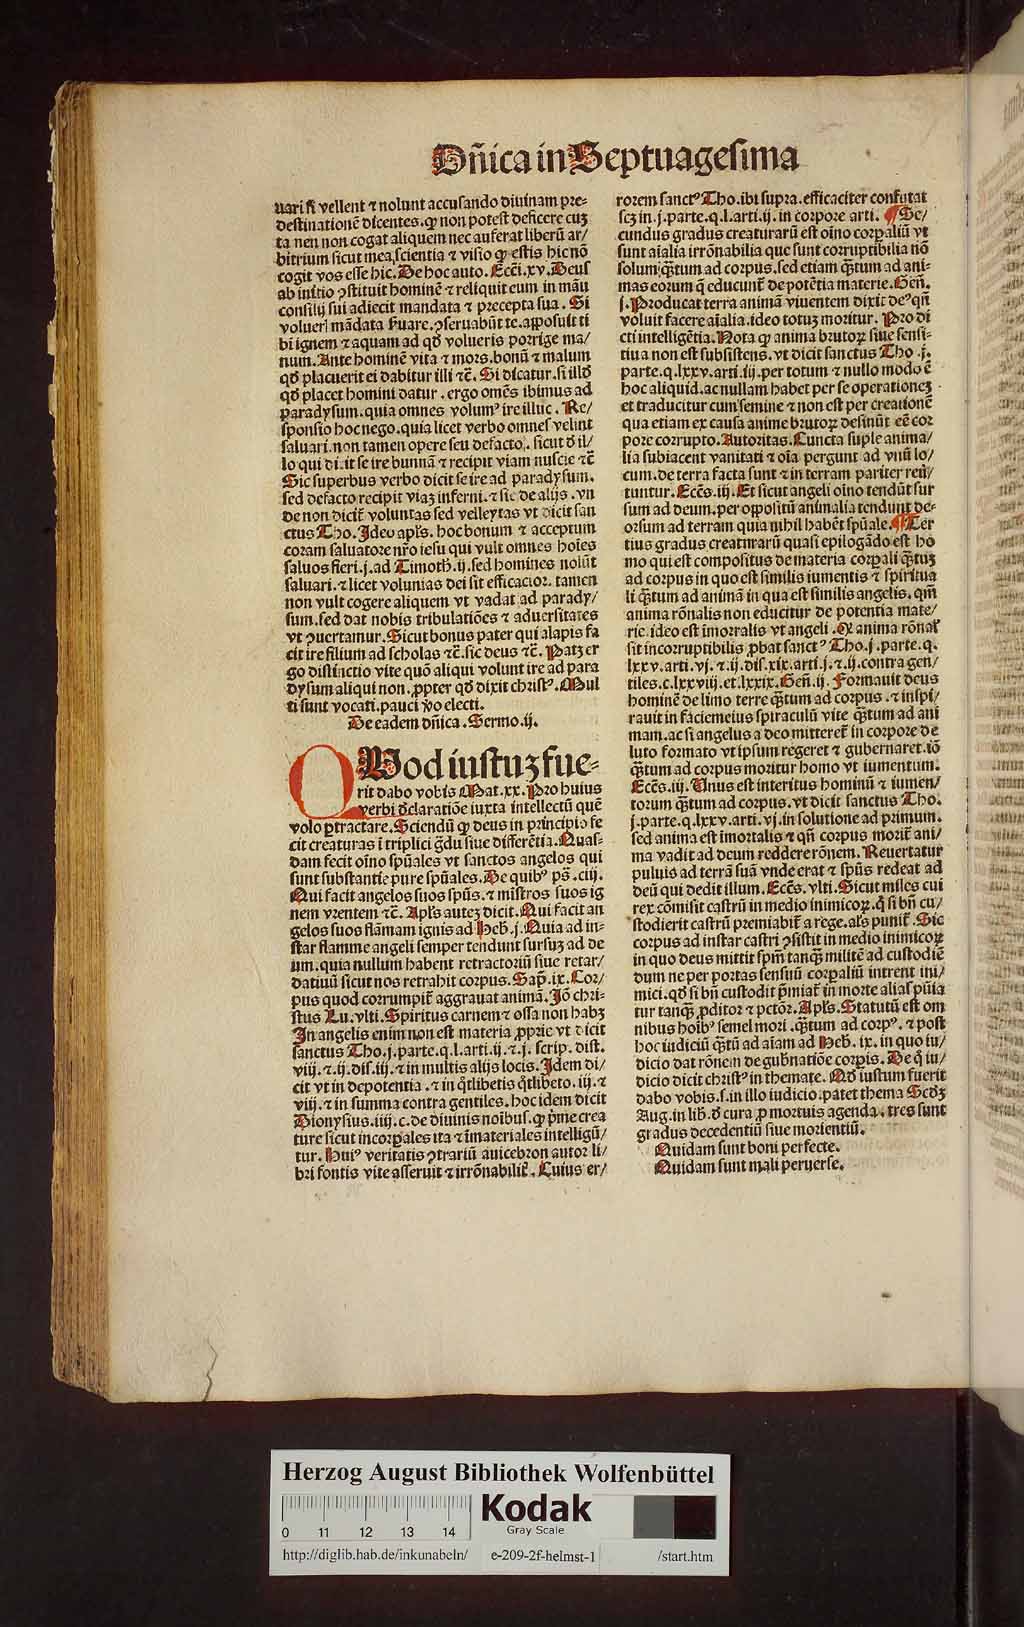 Dñica in Septuagesima
uari si vellent ⁊ nolunt accusando diuinam pre-
destinationẽ dicentes. ꝙ non potest deficere cuʒ
ta nen non cogat aliquem nec auferat liberũ ar/
bitrium sicut mea scientia ⁊ visio ꝙ estis hic nõ
cogit vos esse hic. De hoc auto. Ecci. xv. Deus
ab initio ꝯstituit hominẽ ⁊ reliquit eum in mãu
consilij sui adiecit mandata ⁊ precepta sua. Si
voluerl mãdata ẜuare. ꝯseruabũt te. apposuit ti
bi ignem ⁊ aquam ad qď volueris porrige ma/
num. Ante hominẽ vita ⁊ mors. bonũ ⁊ malum
qď placuerit ei dabitur illi ⁊c̃. Si dicatur. si illď
qď placet homini datur. ergo omẽs ibimus ad
paradysum. quia omnes volumꝰ ire illuc. Re/
sponsio hoc nego. quia licet verbo omnes velint
saluari. non tamen opere seu defacto. sicut ď il/
lo qui di.it se ire bunnã ⁊ recipit viam nuscie ⁊c̃
Sic superbus verbo dicit se ire ad paradysum.
sed defacto recipit viaʒ inferni. ⁊ sic de alijs. vn
de non dicit̃ voluntas sed velleytas vt dicit san
ctus Tho. Ideo apľs. hoc bonum ⁊ acceptum
coram saluatore nr̃o iesu qui vult omnes hoĩes
saluos fieri. j. ad Timoth. ij. sed homines nolũt
saluari. ⁊ licet volunias dei sit efficacior. tamen
non vult cogere aliquem vt vadat ad parady/
sum. sed dat nobis tribulatiões ⁊ aduersitates
vt ꝯuertamur. Sicut bonus pater qui alapis fa
cit ire filium ad scholas ⁊c̃. sic deus ⁊c̃. Patʒ er
go distinctio vite quõ aliqui volunt ire ad para
dysum aliqui non. ꝓpter qď dixit christꝰ. Mul
ti sunt vocati. pauci ṽo electi.
De eadem dñica. Sermo. ij.
QUod iustuʒ fue-
rit dabo vobis Mat. xx. Pro huius
verbi ďclaratiõe iuxta intellectũ quẽ
volo ꝑtractare. Sciendũ ꝙ deus in principio fe
cit creaturas ĩ triplici g̃du siue differẽtia. Quas-
dam fecit oĩno spũales vt sanctos angelos qui
sunt substantie pure spũales. De quibꝰ ps̃. ciij.
Qui facit angelos suos spũs. ⁊ mĩstros suos ig
nem vrentem ⁊c̃. Apľs auteʒ dicit. Qui facit an
gelos suos flãmam ignis ad Heb. j. Quia ad in-
star flamme angeli semper tendunt sursuʒ ad de
um. quia nullum habent retractoriũ siue retar/
datiuũ sicut nos retrahit corpus. Sap̃. ix. Cor/
pus quod corrumpit̃ aggrauat animã. Iõ chri-
stus Lu. vlti. Spiritus carnem ⁊ ossa non habʒ
In angelis enim non est materia ꝓprie vt dicit
sanctus Tho. j. parte. q. l. arti. ij. ⁊. j. scrip. dist.
viij. ⁊. ij. dis. iij. ⁊ in multis alijs locis. Idem di/
cit vt in depotentia. ⁊ in q̃tlibetis q̃tlibeto. iij. ⁊
viij. ⁊ in summa contra gentiles. hoc idem dicit
Dionysius. iiij. c. de diuinis noĩbus. ꝙ p̃me crea
ture sicut incorꝑales ita ⁊ ĩmateriales intelligũ/
tur. Huiꝰ veritatis ꝯtrariũ auicebron autor li/
bri fontis vite asseruit ⁊ irrõnabilit̃. Cuius er/
rorem sanctꝰ Tho. ibi supra. efficaciter confutat
scʒ in. j. parte. q. l. arti. ij. in corpore arti. ¶ Se/
cundus gradus creaturarũ est oĩno corꝑaliũ vt
sunt aĩalia irrõnabilia que sunt corruptibilia nõ
solum q̃tum ad corpus. sed etiam q̃tum ad ani-
mas eorum q̃ educunt̃ de potẽtia materie. Geñ.
j. Producat terra animã viuentem dixit deꝰ qñ
voluit facere aĩalia. ideo totuʒ moritur. Pro di
cti intelligẽtia. Nota ꝙ anima brutoꝝ siue sensi-
tiua non est subsistens. vt dicit sanctus Tho. j.
parte. q. lxxv. arti. iij. per totum ⁊ nullo modo ẽ
hoc aliquid. ac nullam habet per se operationeʒ.
et traducitur cum semine ⁊ non est per creationẽ
qua etiam ex causa anime brutoꝝ desinũt eẽ cor
pore corrupto. Autoritas. Cuncta suple anima/
lia subiacent vanitati ⁊ oĩa pergunt ad vnũ lo/
cum. de terra facta sunt ⁊ in terram pariter reũ/
tuntur. Eccẽs. iij. Et sicut angeli oĩno tendũt sur
sum ad deum. per oppositũ animalia tendunt de-
orsum ad terram quia nihil habẽt spũale. ¶ Ter
tius gradus creaturarũ quasi epilogãdo est ho
mo qui est compositus de materia corꝑali q̃tuʒ
ad corpus in quo est similis iumentis ⁊ spiritua
li q̃tum ad animã in qua est similis angelis. qm̃
anima rõnalis non educitur de potentia mate/
rie. ideo est ĩmorralis vt angeli. Q anima rõnaľ
sit incorruptibilis ꝓbat sanctꝰ Tho. j. parte. q.
lxxv. arti. vj. ⁊. ij. dis. xix. arti. j. ⁊. ij. contra gen/
tiles. c. lxxviij. et. lxxix. Geñ. ij. Formauit deus
hominẽ de limo terre q̃tum ad corpus. ⁊ inspi/
rauit in faciem eius spiraculũ vite q̃tum ad ani
mam. ac si angelus a deo mitteret̃ in corpore de
luto formato vt ipsum regeret ⁊ gubernaret. iõ
q̃tum ad corpus moritur homo vt iumentum.
Eccẽs. iij. Unus est interitus hominũ ⁊ iumen/
torum q̃tum ad corpus. vt dicit sanctus Tho.
j. parte. q. lxxv. arti. vj. in solutione ad primum.
sed anima est ĩmortalis ⁊ qñ corpus morit̃ ani/
ma vadit ad deum reddere rõnem. Reuertatur
puluis ad terrã suã vnde erat ⁊ spũs redeat ad
deũ qui dedit illum. Eccẽs. vlti. Sicut miles cui
rex cõmisit castrũ in medio inimicoꝝ. q̃ si bñ cu/
stodierit castrũ premiabit̃ a rege. aľs punit̃. Sic
corpus ad instar castri ꝯsistit in medio inimicoꝝ
in quo deus mittit spm̃ tanqʒ militẽ ad custodiẽ
dum ne per portas sensuũ corꝑaliũ intrent ini/
mici. qď si bñ custodit p̃miat̃ in morte alias pũia
tur tanqʒ ꝓditor ⁊ pctõr. Apľs. Statutũ est om
nibus hoĩbꝰ semel mori. q̃tum ad corpꝰ. ⁊ post
hoc iudiciũ q̃tũ ad aĩam ad Heb. ix. in quo iu/
dicio dat rõnem de gubnatiõe corꝑis. De q̃ iu/
dicio dicit christꝰ in themate. Qď iustum fuerit
dabo vobis. s. in illo iudicio. patet thema Scďʒ
Aug. in lib. ď cura ꝓ mortuis agenda. tres sunt
gradus decedentiũ siue morientiũ.
Quidam sunt boni perfecte.
Quidam sunt mali peruerse.
Herzog August Bibliothek Wolfenbüttel
Kodak
Gray Scale
0 11 12 13 14
http://diglib.hab.de/inkunabeln/ e-209-2f-helmst-1 /start.htm